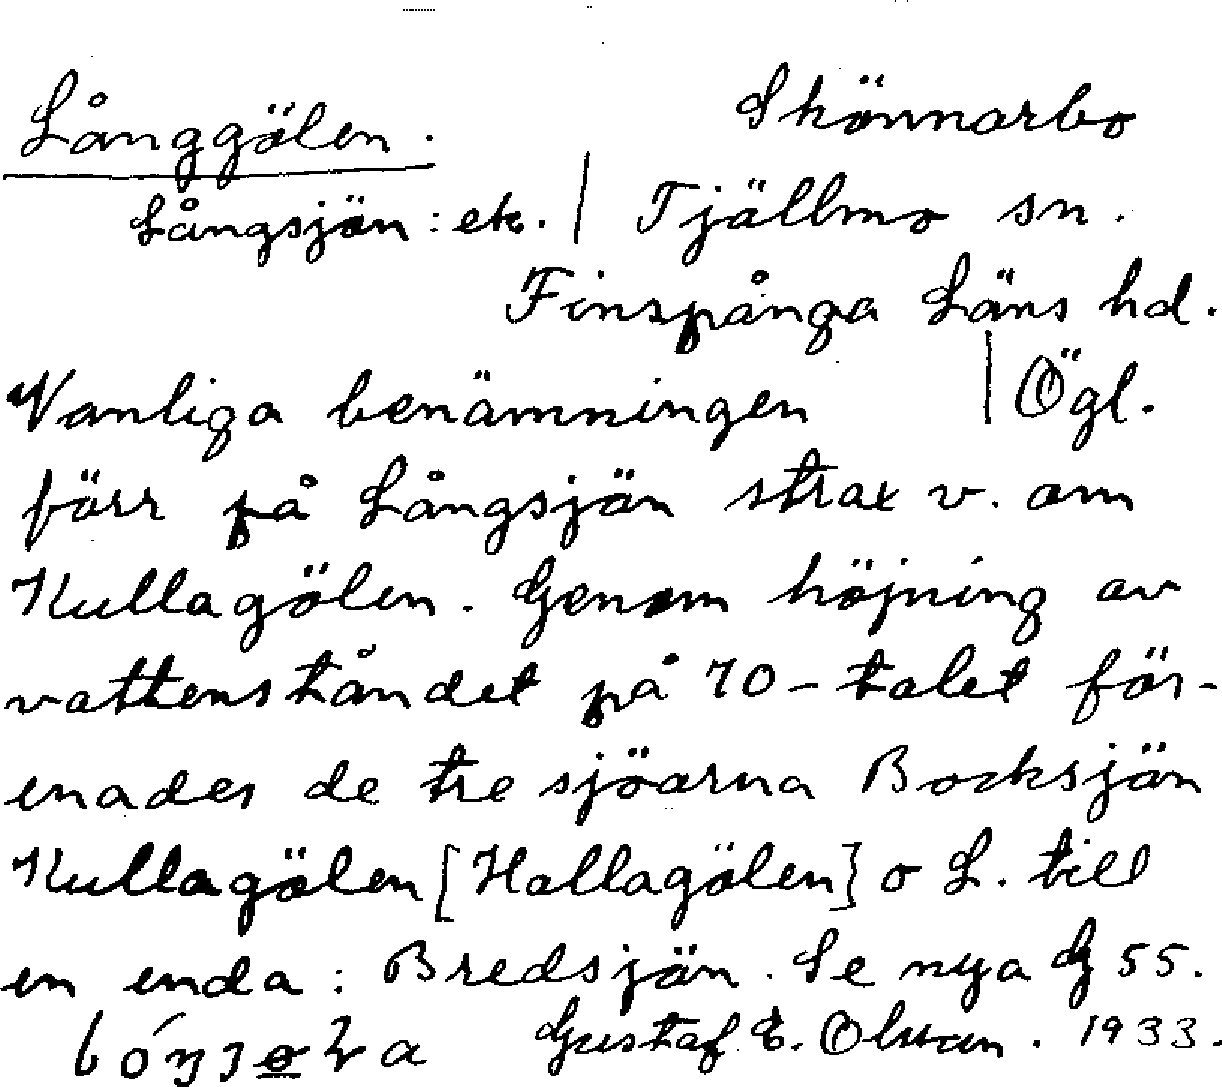 Långgölen.
Skönnarbo
Långsjön: ek. | Tjällmo sn.
Finspånga Läns hd.
Vanliga benämningen | Ögl.
förr på Långsjön strax v. om
Kullagölen. Genom höjning av
vattenståndet på 70-talet för-
enades de tre sjöarna Bocksjön
Kullagölen [Hallagölen] o L. till
en enda: Bredsjön. Se nya G 55.
Gustaf E. Olsson. 1933.